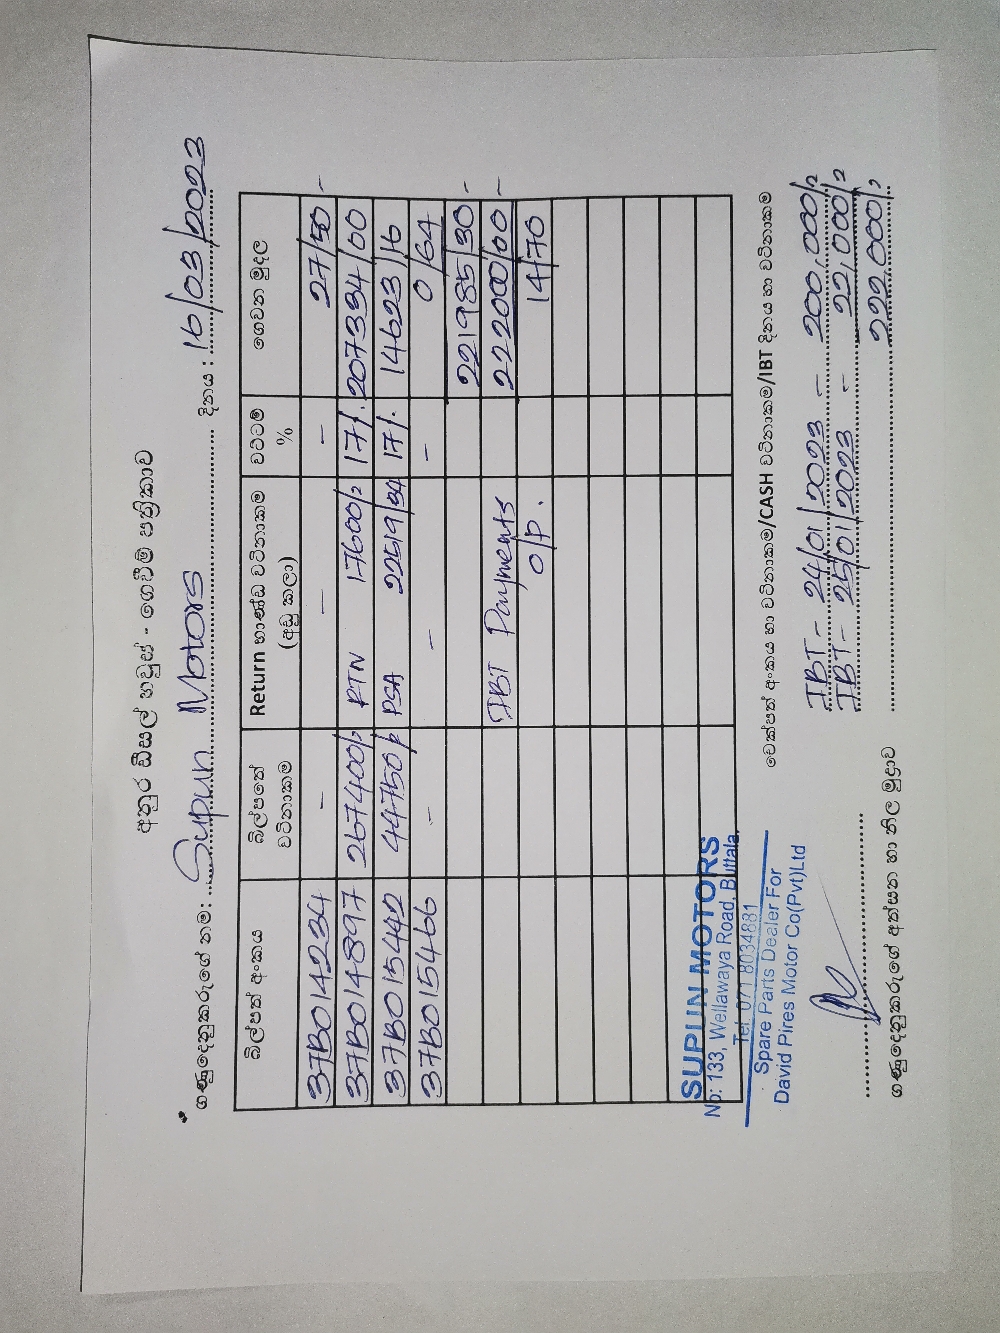 අනුර ඩීසල් හවුස් - ගෙවීම් පත්‍රිකාව
ගණුදෙනුකරුගේ නම: Supun Motors දිනය : 16/03/2023
බිල්පත් අංකය බිල්පතේ වටිනාකම Return භාණ්ඩ වටිනාකම (අඩු කලා) වට්ටම් % ගෙවන මුදල
37B014234 - - - 27/50 -
37B014897 267400/2 RTN 17600/2 17%. 207334/00
37B015442 44750/2 PSA 22519/84 17%. 14623/16
37B015466 - - - 0/64
221985/30 -
IBT Payments 222000/00 -
O/P. 14/70
චෙක්පත් අංකය හා වටිනාකම/CASH වටිනාකම/IBT දිනය හා වටිනාකම
IBT - 24/01/2023 - 200,000/2
IBT - 25/01/2023 - 22,000/2
222,000/2
SUPUN MOTORS
No: 133, Wellawaya Road, Buttala.
Tel: 071 8034881
Spare Parts Dealer For
David Pires Motor Co(Pvt)Ltd
ගණුදෙනුකරුගේ අත්සන හා නිල මුද්‍රාව